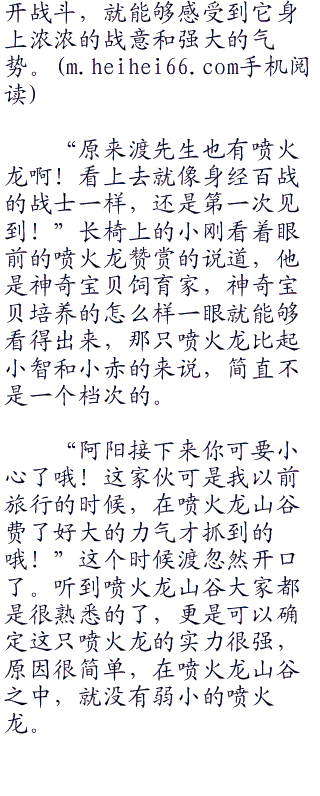 开战斗，就能够感受到它身
上浓浓的战意和强大的气
势。(m.heihei66.com手机阅
读)
“原来渡先生也有喷火
龙啊！看上去就像身经百战
的战士一样，还是第一次见
到！”长椅上的小刚看着眼
前的喷火龙赞赏的说道，他
是神奇宝贝饲育家，神奇宝
贝培养的怎么样一眼就能够
看得出来，那只喷火龙比起
小智和小赤的来说，简直不
是一个档次的。
“阿阳接下来你可要小
心了哦！这家伙可是我以前
旅行的时候，在喷火龙山谷
费了好大的力气才抓到的
哦！”这个时候渡忽然开口
了。听到喷火龙山谷大家都
是很熟悉的了，更是可以确
定这只喷火龙的实力很强，
原因很简单，在喷火龙山谷
之中，就没有弱小的喷火
龙。